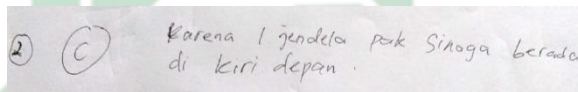 2 C Karena 1 jendela pak Sinoga berada
di kiri depan.